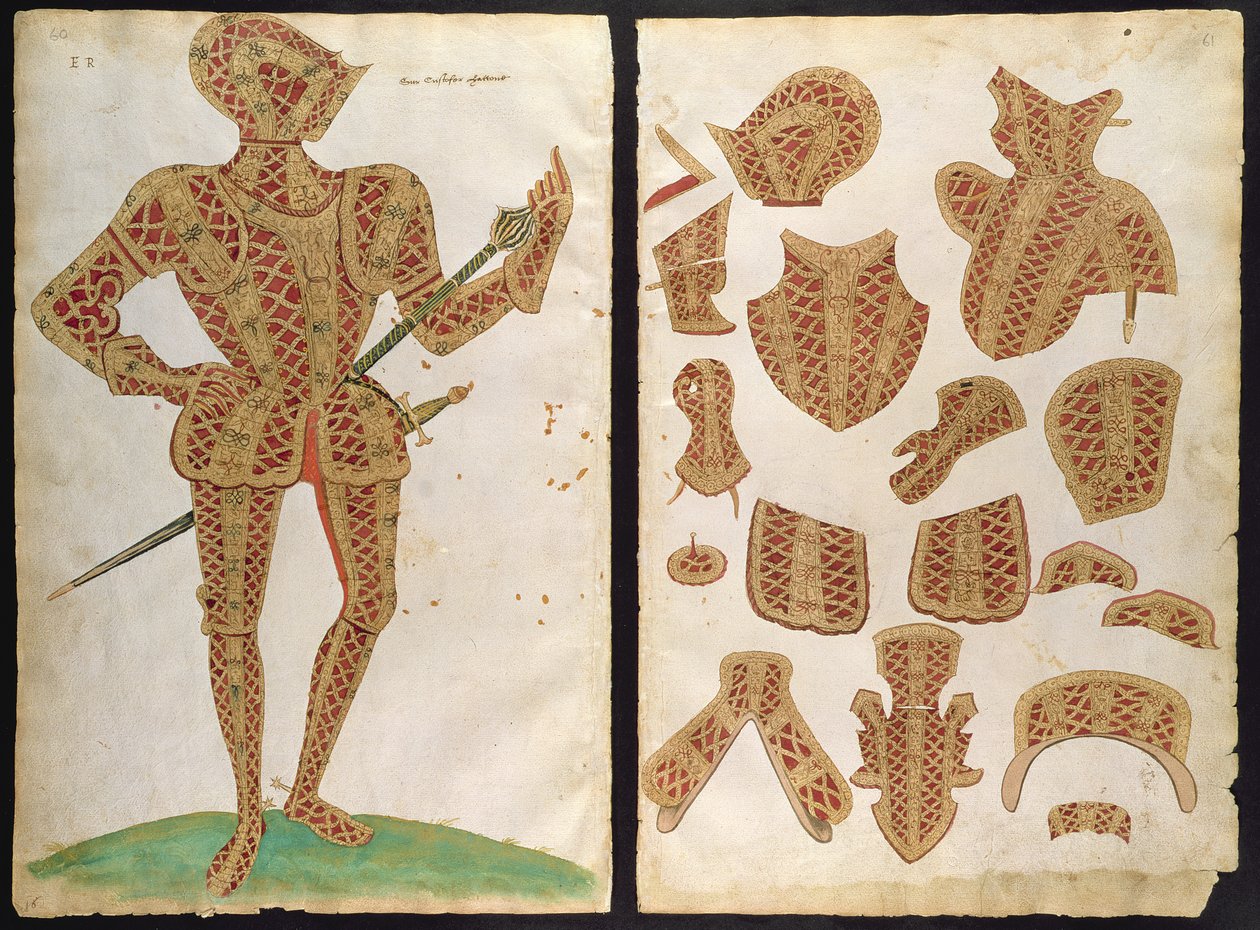 60
E R
Surr Cristofor Hattone
61